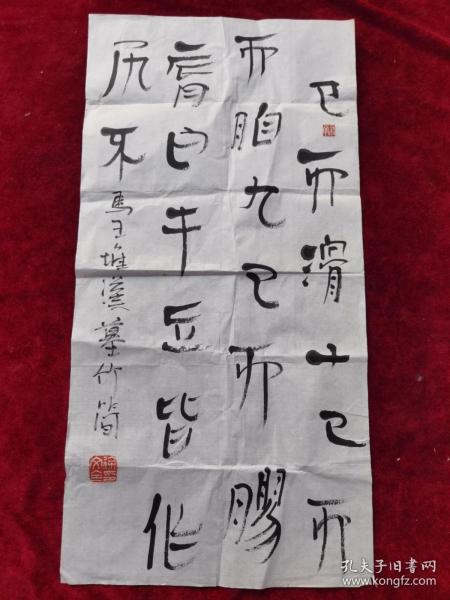 已而滑十已而
而脂九已而膠
脣白手足皆作
尻不
馬王堆漢墓竹簡
孔夫子旧书网
www.kongfz.com